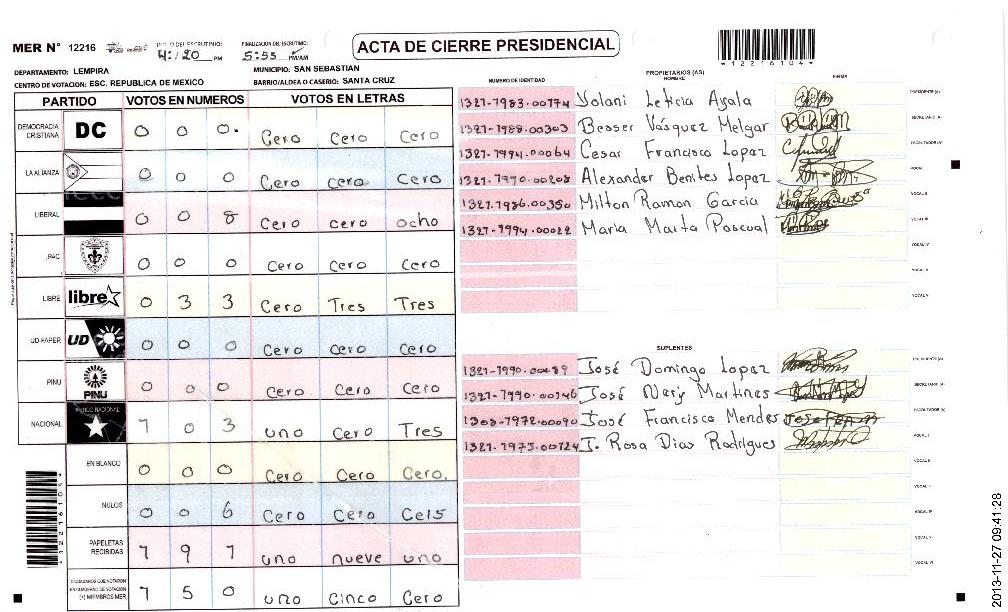 MER N° 12216
INICIO DEL ESCRUTINIO: 4:20 PM
FINALIZACION DEL ESCRUTINIO: 5:55 PM/AM
ACTA DE CIERRE PRESIDENCIAL
* 1 2 2 1 6 1 0 4 *
DEPARTAMENTO: LEMPIRA
MUNICIPIO: SAN SEBASTIAN
CENTRO DE VOTACION: ESC. REPUBLICA DE MEXICO
BARRIO/ALDEA O CASERIO: SANTA CRUZ
PARTIDO VOTOS EN NUMEROS VOTOS EN LETRAS
DEMOCRACIA CRISTIANA DC 0 0 0. Cero Cero Cero
LA ALIANZA 0 0 0 Cero cero Cero
LIBERAL 0 0 8 Cero cero ocho
PAC 0 0 0 Cero Cero Cero
LIBRE libre 0 3 3 Cero Tres Tres
UD FAPER UD 0 0 0 Cero Cero Cero
PINU PINU 0 0 0 Cero Cero Cero
NACIONAL 1 0 3 uno Cero Tres
EN BLANCO 0 0 0 Cero Cero Cero.
NULOS 0 0 6 Cero Cero Ceis
PAPELETAS RECIBIDAS 1 9 1 uno nueve uno
CIUDADANOS QUE VOTARON (+) MIEMBROS MER 1 5 0 uno Cinco Cero
NUMERO DE IDENTIDAD PROPIETARIOS (AS) NOMBRE FIRMA
1327-1983-00174 Yolani Leticia Ayala PRESIDENTE (A)
1327-1988-00303 Besser Vásquez Melgar SECRETARIO (A)
1327-1994-00064 Cesar Francisco Lopaz ESCRUTADOR (A)
1327-1970-00208 Alexander Benites Lopez VOCAL I
1327-1986-00350 Milton Ramon Garcia VOCAL II
1327-1994-00022 Maria Marta Pascual VOCAL III
VOCAL IV
VOCAL V
SUPLENTES
1327-1990-00089 José Domingo Lopaz PRESIDENTE (A)
1327-1990-00146 José Nery Martines SECRETARIO (A)
1308-1972-00090 José Francisco Mendes ESCRUTADOR (A)
1327-1973-00124 J. Rosa Dias Rodrigues VOCAL I
VOCAL II
VOCAL III
VOCAL IV
VOCAL V
2013-11-27 09:41:28